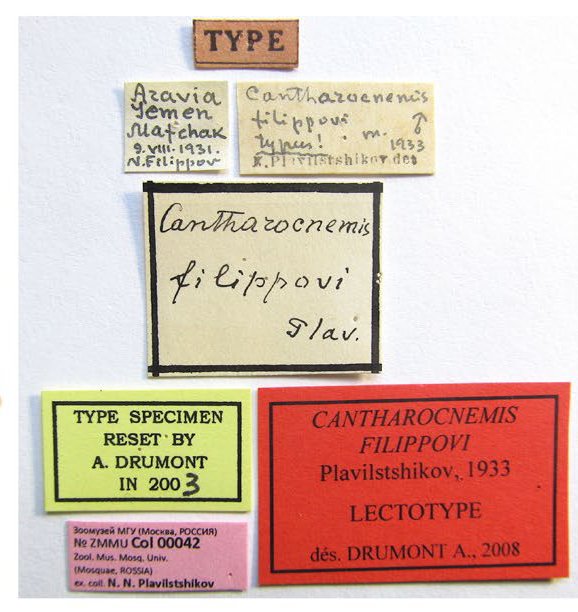 TYPE
Aravia
Yemen
Matchak
9.VIII.1931.
N.Filippov
Cantharocnemis
filippovi
typus! m. ♂
1933
N.Plavilstshikov det
Cantharocnemis
filippovi
Plav.
TYPE SPECIMEN
RESET BY
A. DRUMONT
IN 2003
CANTHAROCNEMIS
FILIPPOVI
Plavilstshikov, 1933
LECTOTYPE
dés. DRUMONT A., 2008
Зоомузей МГУ (Москва, РОССИЯ)
№ ZMMU Col 00042
Zool. Mus. Mosq. Univ.
(Mosquae, ROSSIA)
ex. coll. N. N. Plavilstshikov